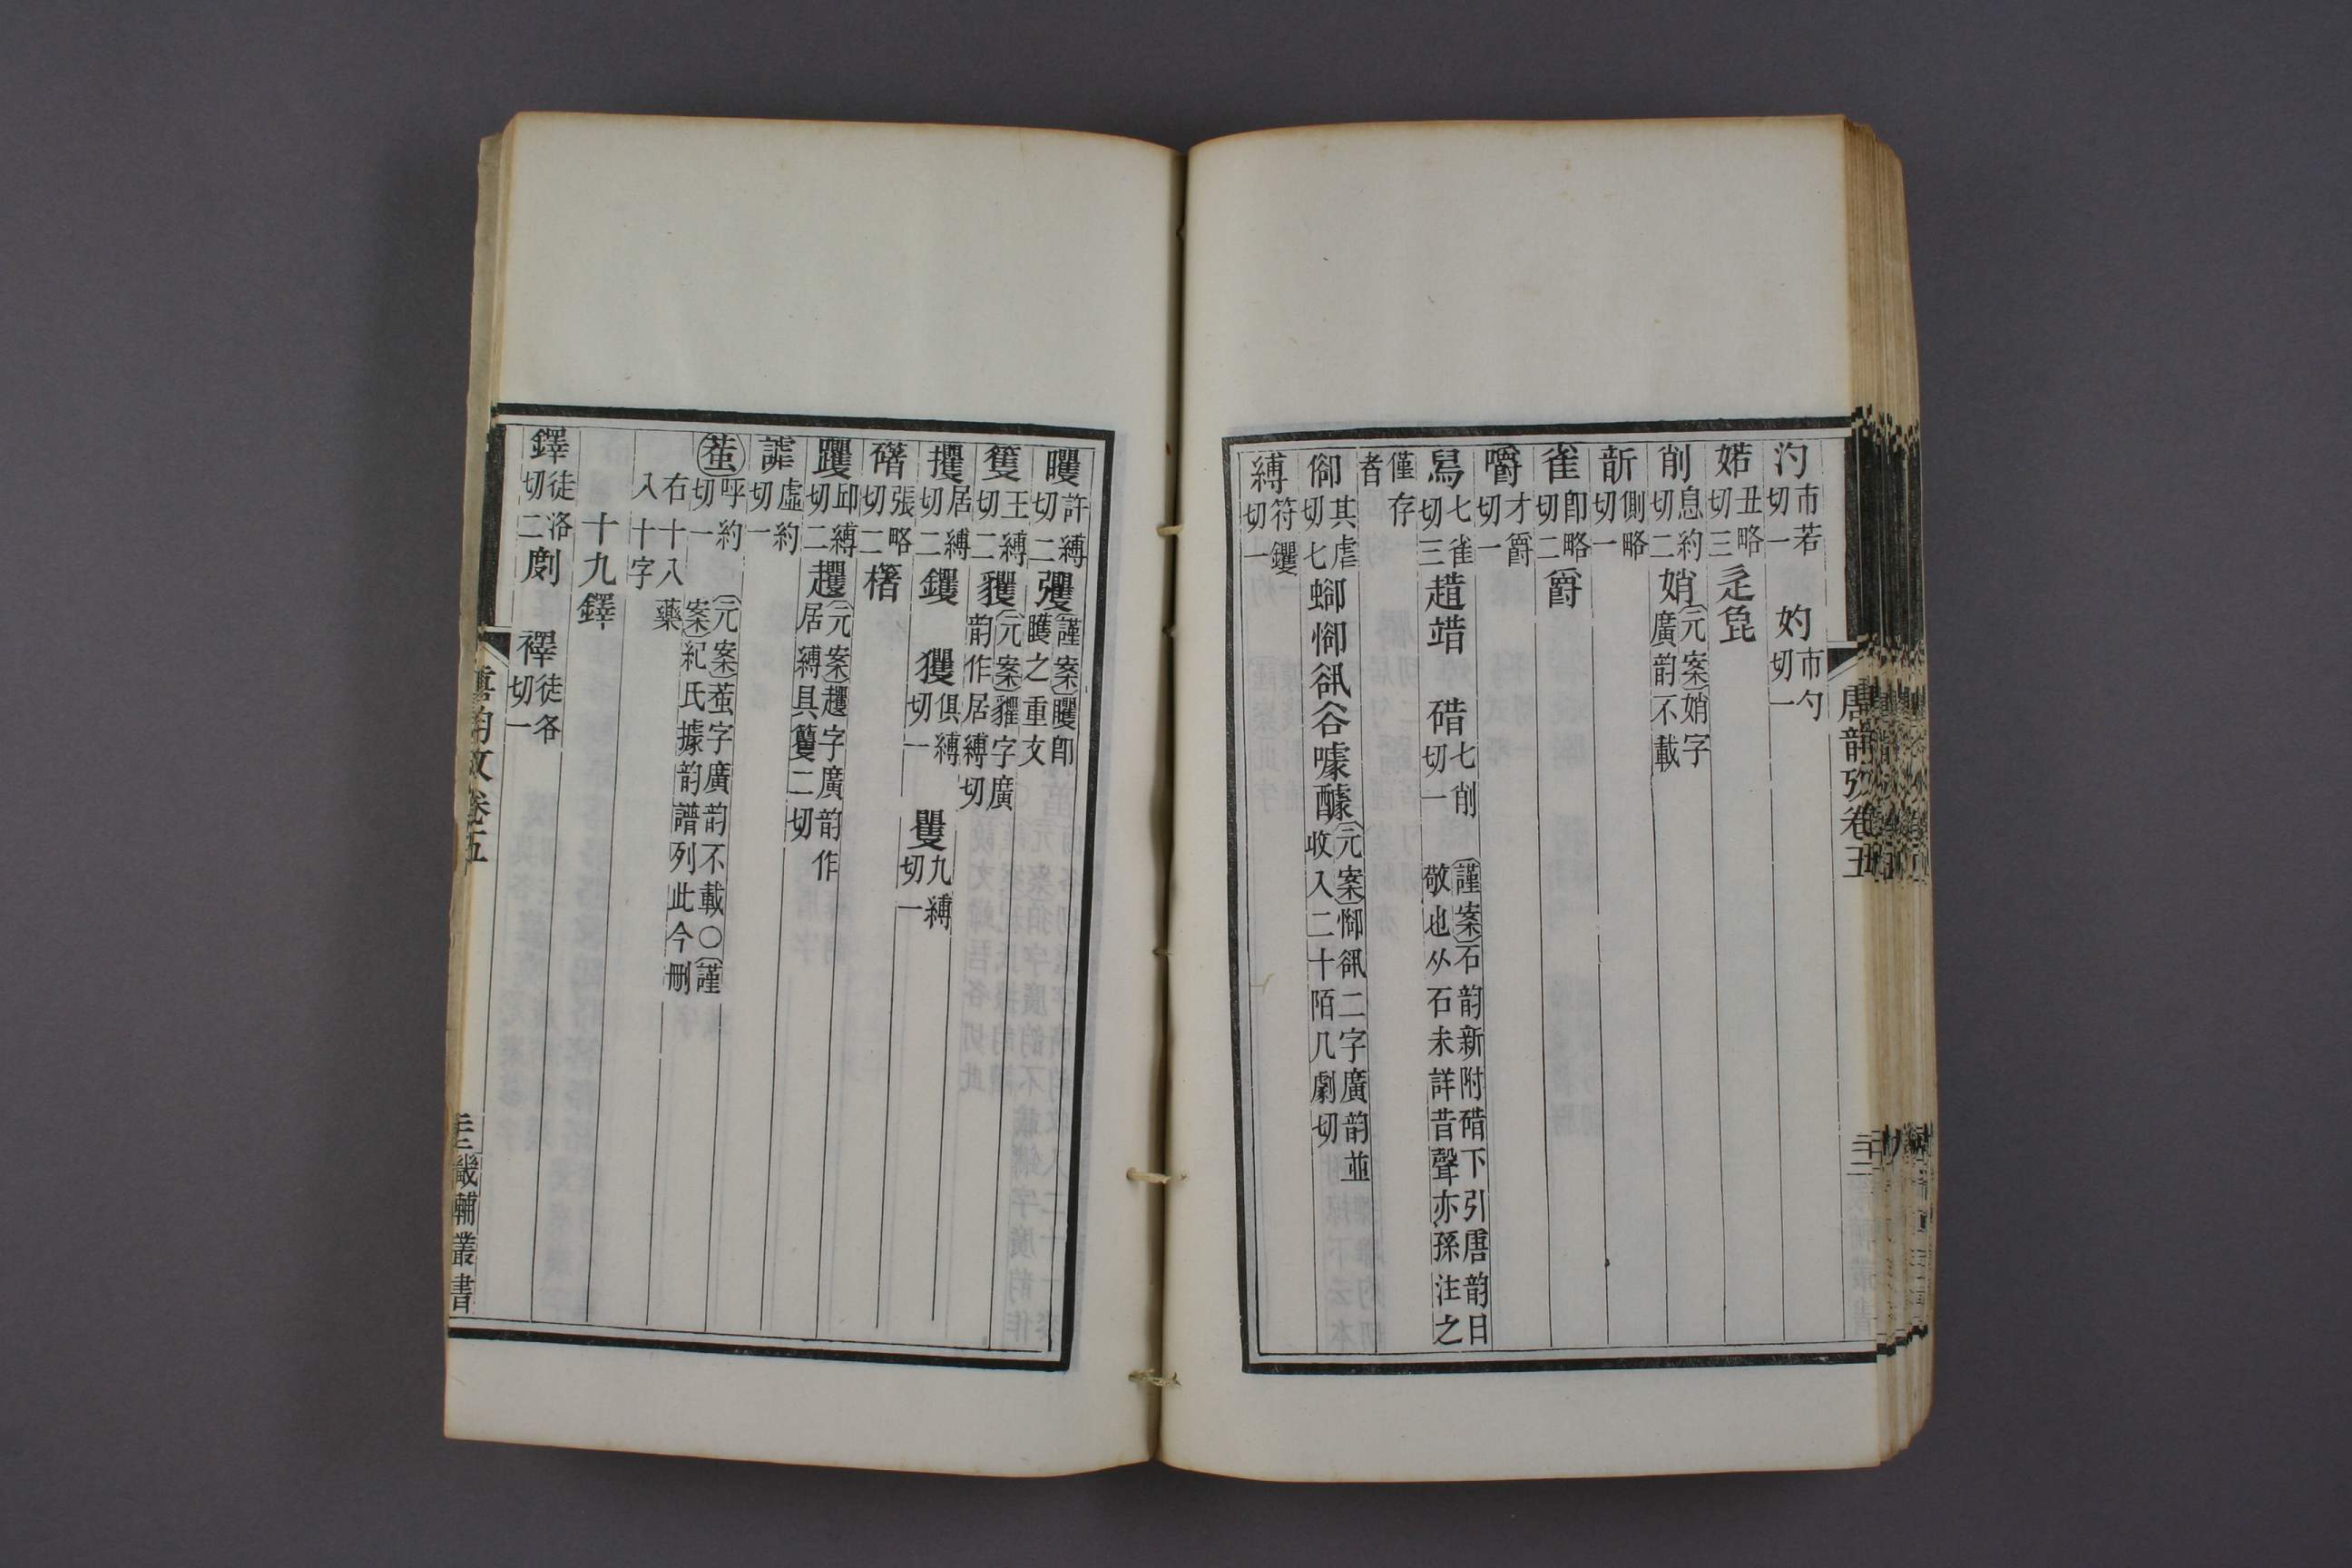 唐韵攷卷五
汋市若切一 妁市勺切一
婼丑略切三 辵㲋
削息約切二 娋元案娋字廣韵不載
斮側略切一
雀卽略切二 爵
嚼才爵切一
舄七雀切三 趞踖 碏七削切一 謹案石韵新附碏下引唐韵曰敬也从石未詳昔聲亦孫注之
僅存者
御其虐切七 𧍕㥛𧮫谷噱醵元案㥛𧮫二字廣韵並收入二十陌几劇切
縛符钁切一
矍許縛切二 彏謹案矆卽矆之重文
籰王縛切二 貜元案貜字廣韵作居縛切
攫居縛切二 钁 玃俱縛切一 矍九縛切一
磼張略切二 櫡
躩邱縛切二 趯元案趯字廣韵作居縛具籰二切
謔虛約切一
䖈呼約切一 元案䖈字廣韵不載○謹案紀氏據韵譜列此今刪
右十八藥
入十字
十九鐸
鐸徒洛切二 剫 襗徒各切一
唐韵攷卷五
畿輔叢書